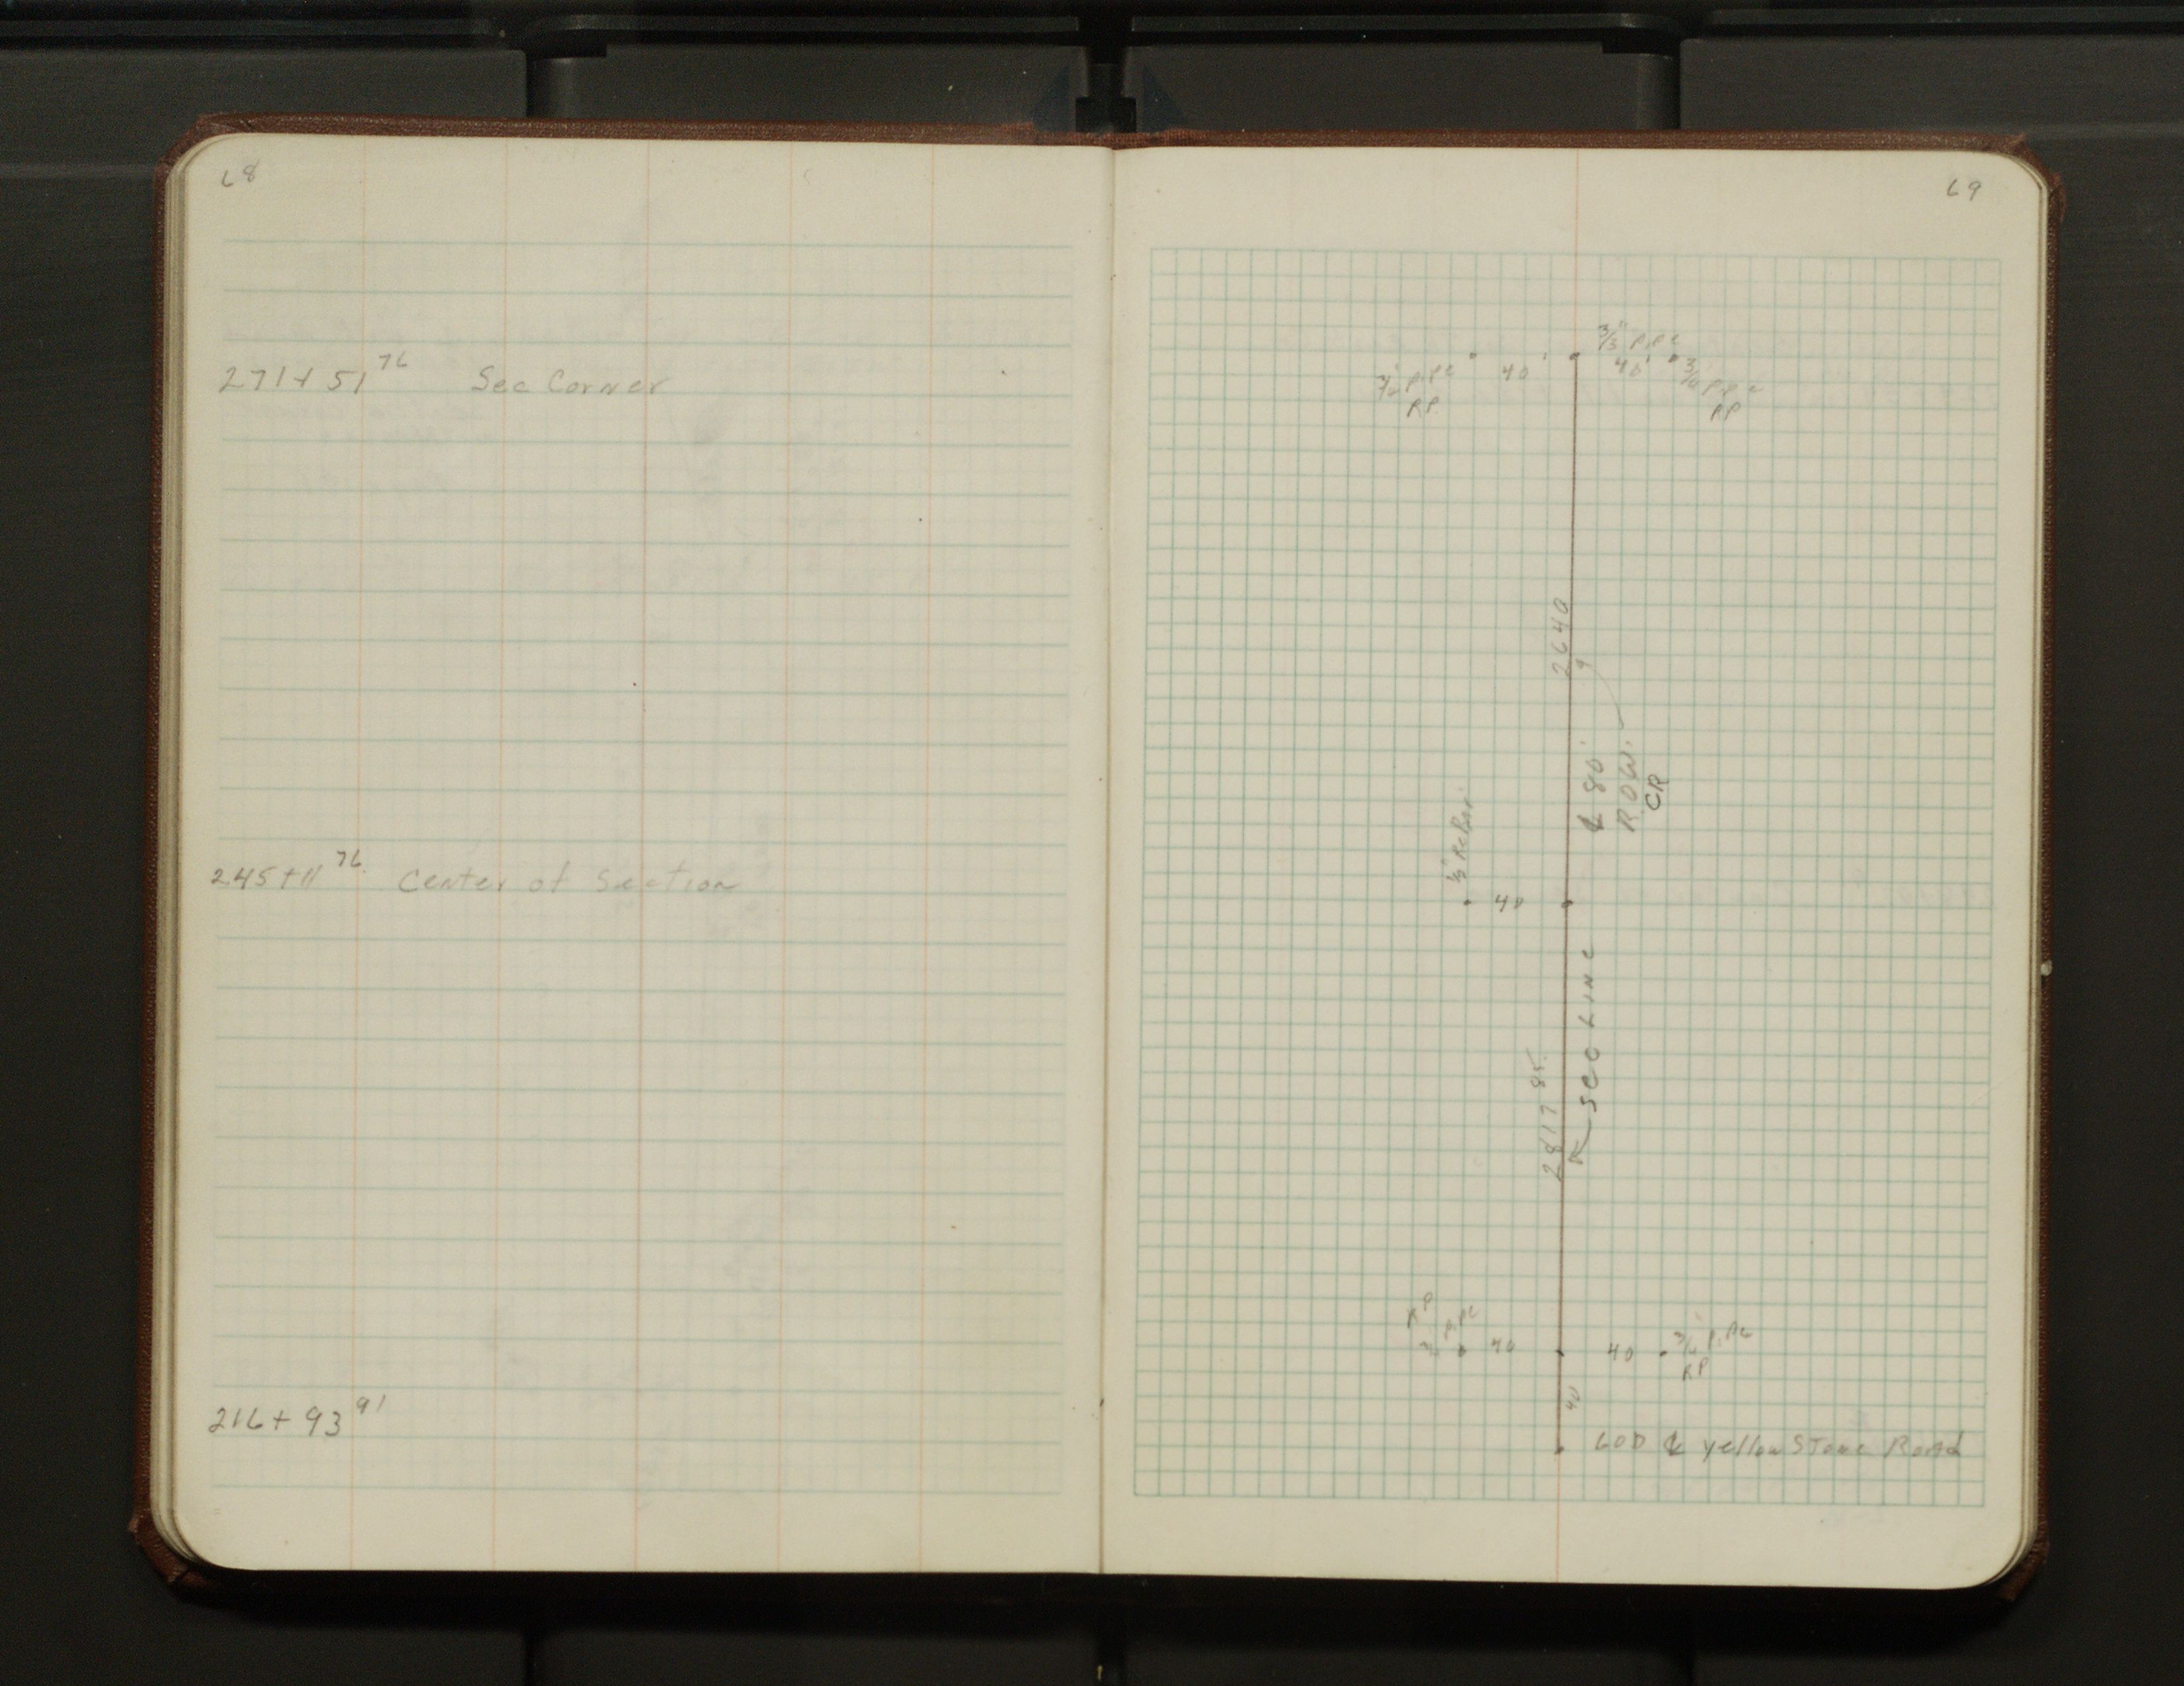 68
271+51 76 Sec Corner
245+11 76 Center of Section
216+93 91
69
3/8" Pipe
40'
40'
3/4 Pipe
RP
3/4 Pipe
RP
2640
℄ 80'
R.O.W.
CR
1/2" ReBar
40
SEC LINE
2817 85
RP
Pipe
40
40
3/4 Pipe
RP
40
LOD ℄ Yellow Stone Road